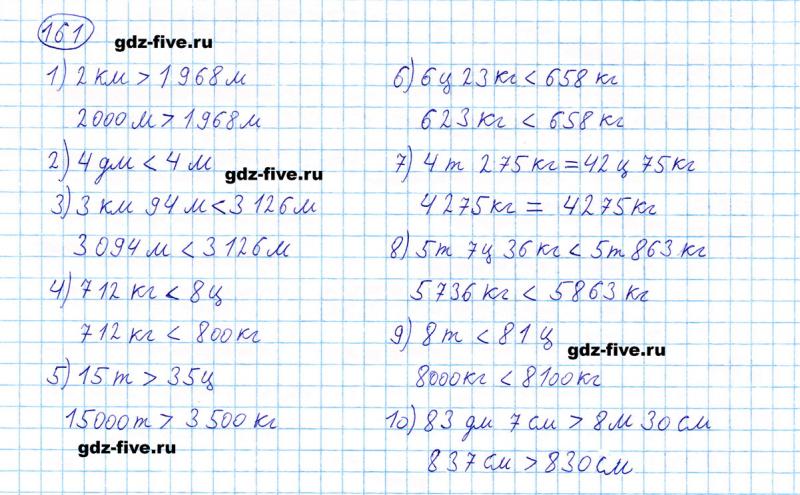 161
gdz-five.ru
1) 2 км > 1 968 м
2000 м > 1 968 м
2) 4 дм < 4 м
gdz-five.ru
3) 3 км 94 м < 3 126 м
3 094 м < 3 126 м
4) 712 кг < 8 ц
712 кг < 800 кг
5) 15 т > 35 ц
15000 т > 3 500 кг
gdz-five.ru
6) 6 ц 23 кг < 658 кг
623 кг < 658 кг
7) 4 т 275 кг = 42 ц 75 кг
4 275 кг = 4 275 кг
8) 5 т 7 ц 36 кг < 5 т 863 кг
5 736 кг < 5 863 кг
9) 8 т < 81 ц
gdz-five.ru
8000 кг < 8 100 кг
10) 83 дм 7 см > 8 м 30 см
837 см > 830 см